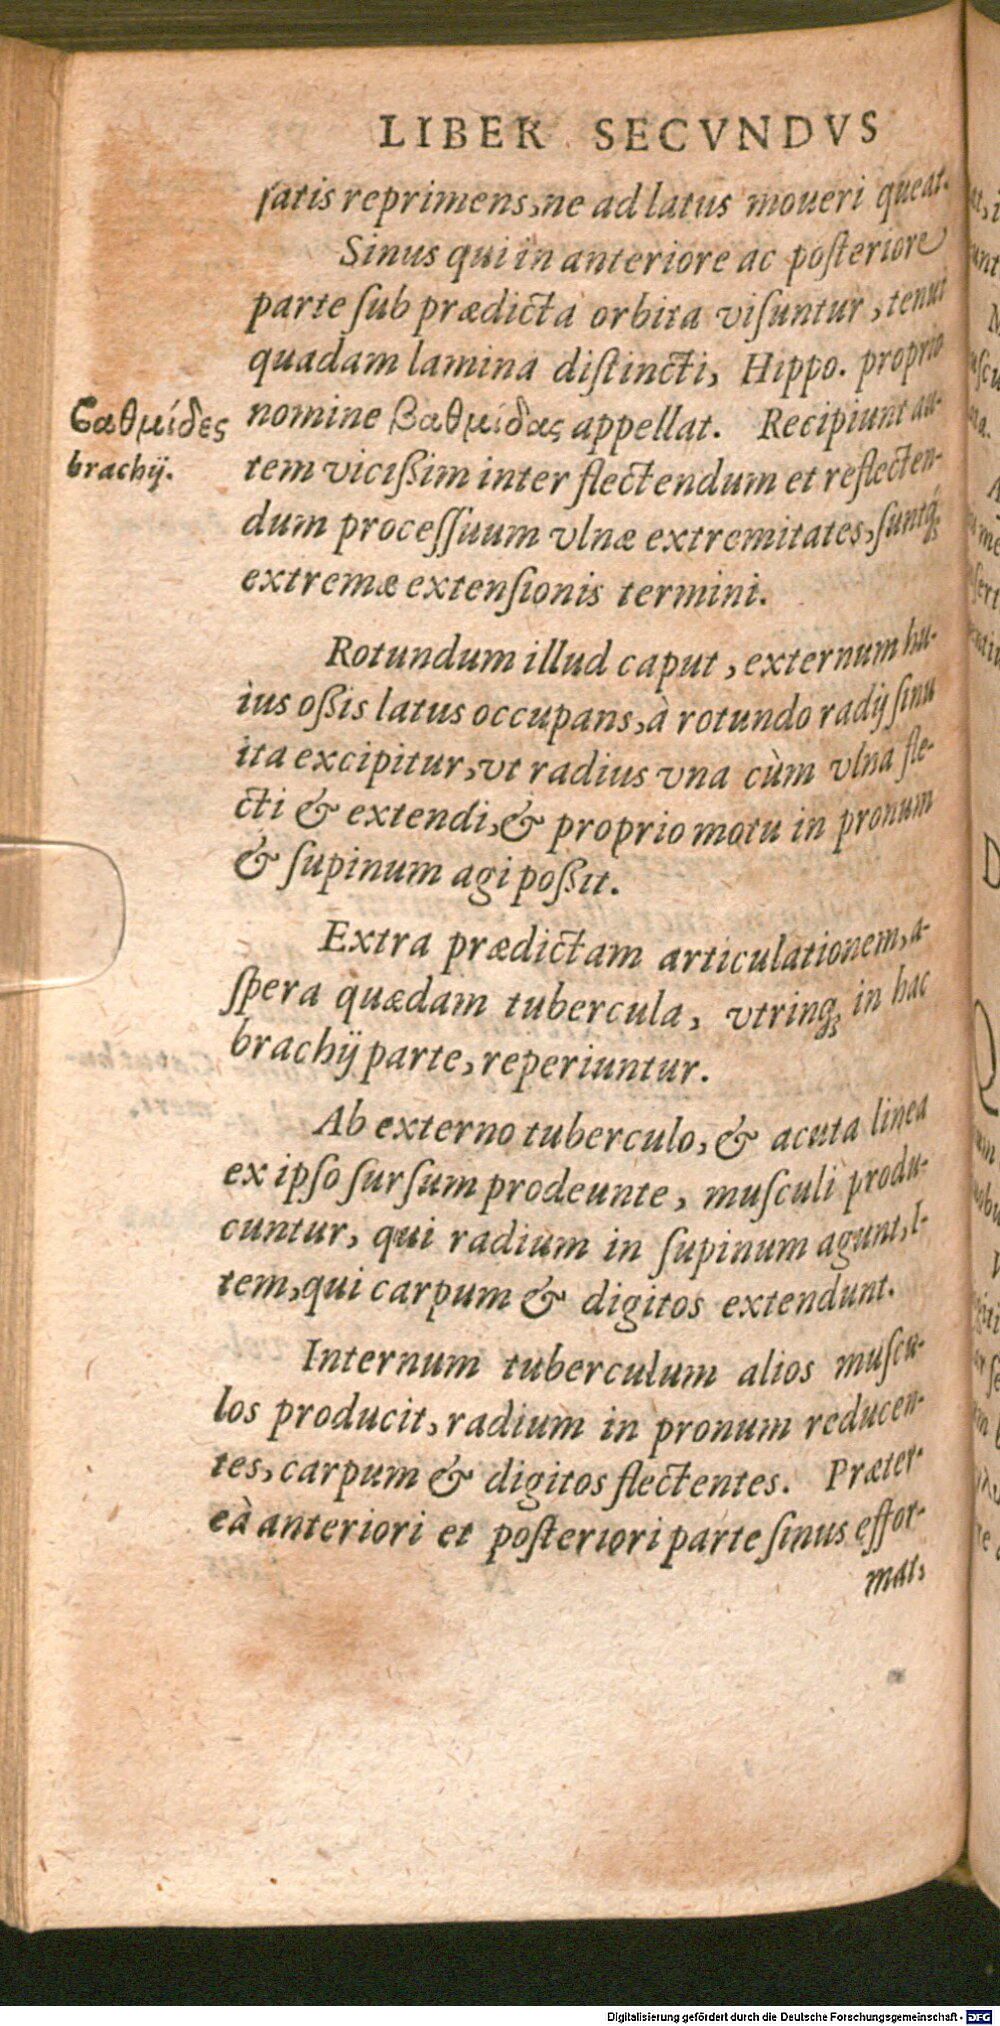 LIBER SECVNDVS
ſatis reprimens, ne ad latus moueri queat.
Sinus qui in anteriore ac poſteriore
parte ſub prædicta orbita viſuntur, tenui
quadam lamina diſtincti, Hippo. proprio
nomine βαθμίδας appellat. Recipiunt au-
ϐαθμίδες
brachij.
tem viciſſim inter flectendum et reflecten-
dum proceſſuum vlnæ extremitates, ſuntq́;
extremæ extenſionis termini.
Rotundum illud caput, externum hu-
ius oſſis latus occupans, à rotundo radij ſinu
ita excipitur, vt radius vna cùm vlna fle-
cti & extendi, & proprio motu in pronum
& ſupinum agi poſſit.
Extra prædictam articulationem, a-
ſpera quædam tubercula, vtrinq; in hac
brachij parte, reperiuntur.
Ab externo tuberculo, & acuta linea
ex ipſo ſurſum prodeunte, muſculi produ-
cuntur, qui radium in ſupinum agunt, I-
tem, qui carpum & digitos extendunt.
Internum tuberculum alios muſcu-
los producit, radium in pronum reducen-
tes, carpum & digitos flectentes. Præter-
eà anteriori et poſteriori parte ſinus effor-
mat,
Digitalisierung gefördert durch die Deutsche Forschungsgemeinschaft - DFG